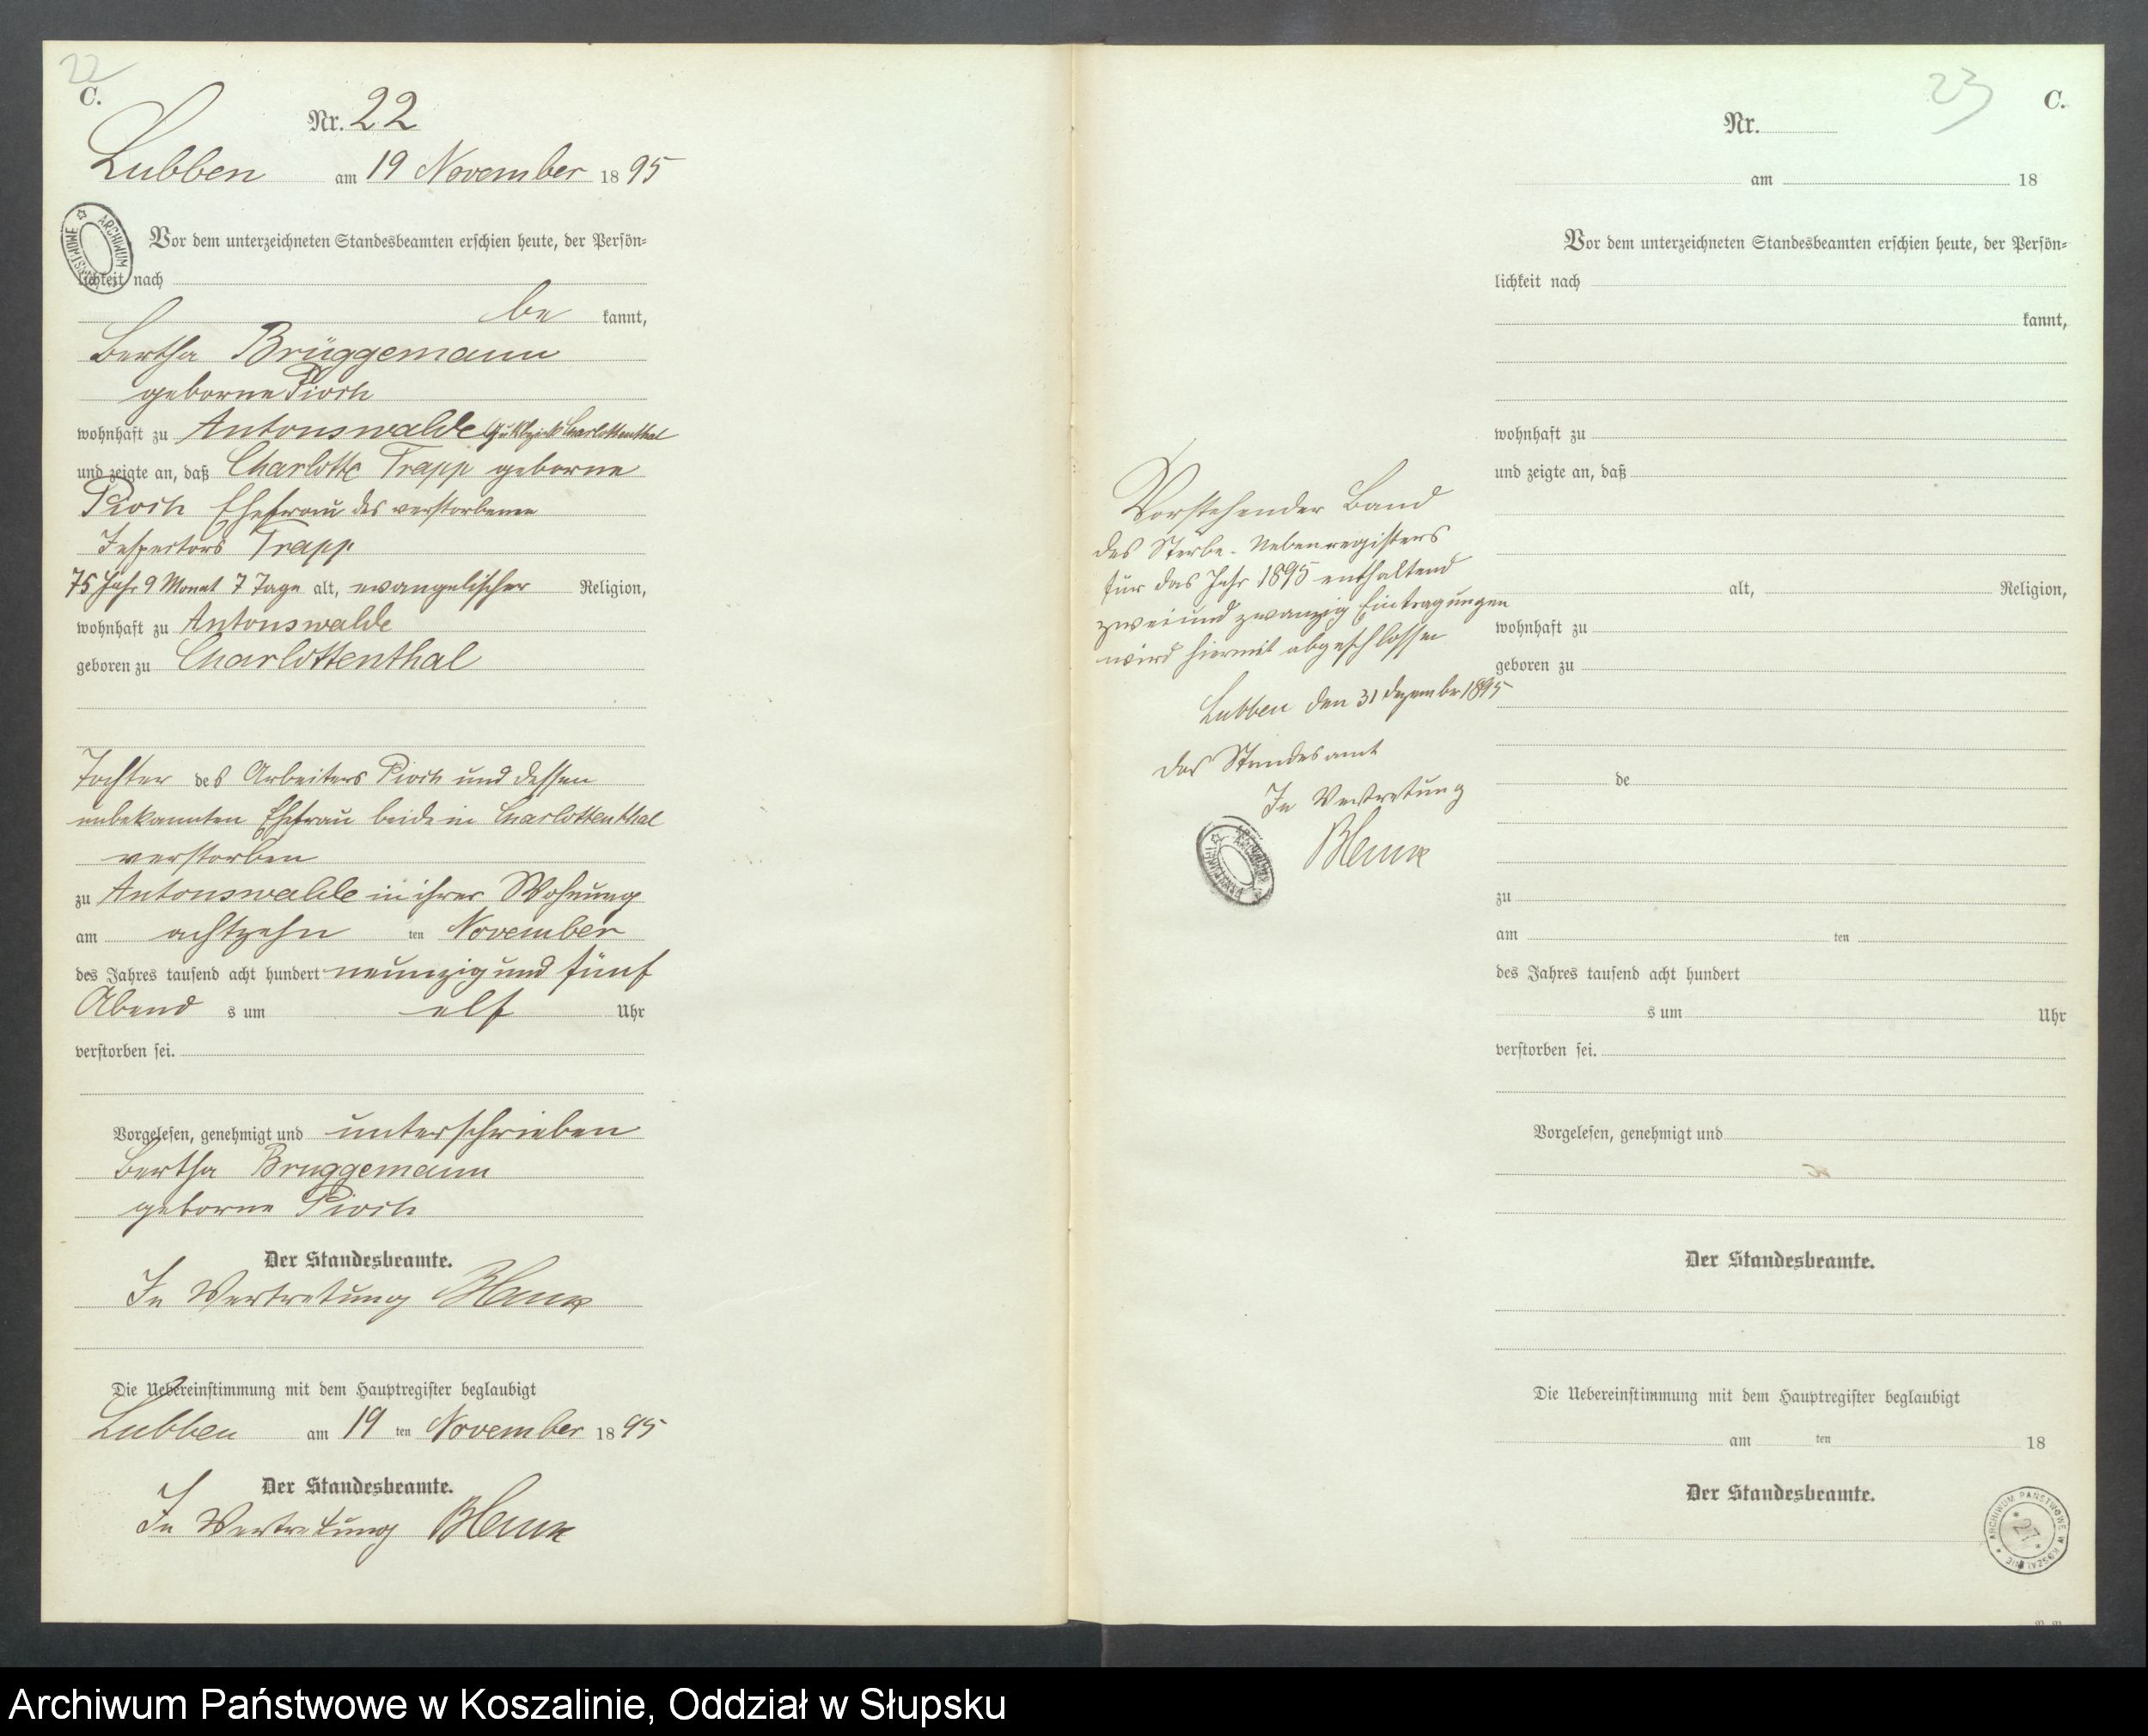 22
C.
Nr. 22
Lubben am 19 November 1895
Vor dem unterzeichneten Standesbeamten erschien heute, der Persön-
lichkeit nach
be kannt,
Bertha Brüggemann
geborne Pioch
wohnhaft zu Antonswalde Charlottenthal
und zeigte an, daß Charlotte Trapp geborne
Pioch Ehefrau des verstorbenen
Inspectors Trapp
75 Jahr 9 Monat 7 Tage alt, evangelischer Religion,
wohnhaft zu Antonswalde
geboren zu Charlottenthal
Tochter des Arbeiters Pioch und dessen
unbekannten Ehefrau beide in Charlottenthal
verstorben
zu Antonswalde in ihrer Wohnung
am achtzehn ten November
des Jahres tausend acht hundert neunzig und fünf
Abend s um elf Uhr
verstorben sei.
Vorgelesen, genehmigt und unterschrieben
Bertha Bruggemann
geborne Pioch
Der Standesbeamte.
In Vertretung
Die Uebereinstimmung mit dem Hauptregister beglaubigt
Lubben am 19 ten November 1895
Der Standesbeamte.
In Vertretung
Vorstehender Band
des Sterbe-Nebenregisters
für das Jahr 1895 enthaltend
zwei und zwanzig Eintragungen
wird hiermit abgeschlossen
Lubben den 31 Dezember 1895
Das Standesamt
In Vertretung
23
C.
Nr.
am 18
Vor dem unterzeichneten Standesbeamten erschien heute, der Persön-
lichkeit nach
kannt,
wohnhaft zu
und zeigte an, daß
alt, Religion,
wohnhaft zu
geboren zu
de
zu
am ten
des Jahres tausend acht hundert
s um Uhr
verstorben sei.
Vorgelesen, genehmigt und
Der Standesbeamte.
Die Uebereinstimmung mit dem Hauptregister beglaubigt
am ten 18
Der Standesbeamte.
ARCHIWUM PAŃSTWOWE W KOSZALINIE
27
Archiwum Państwowe w Koszalinie, Oddział w Słupsku